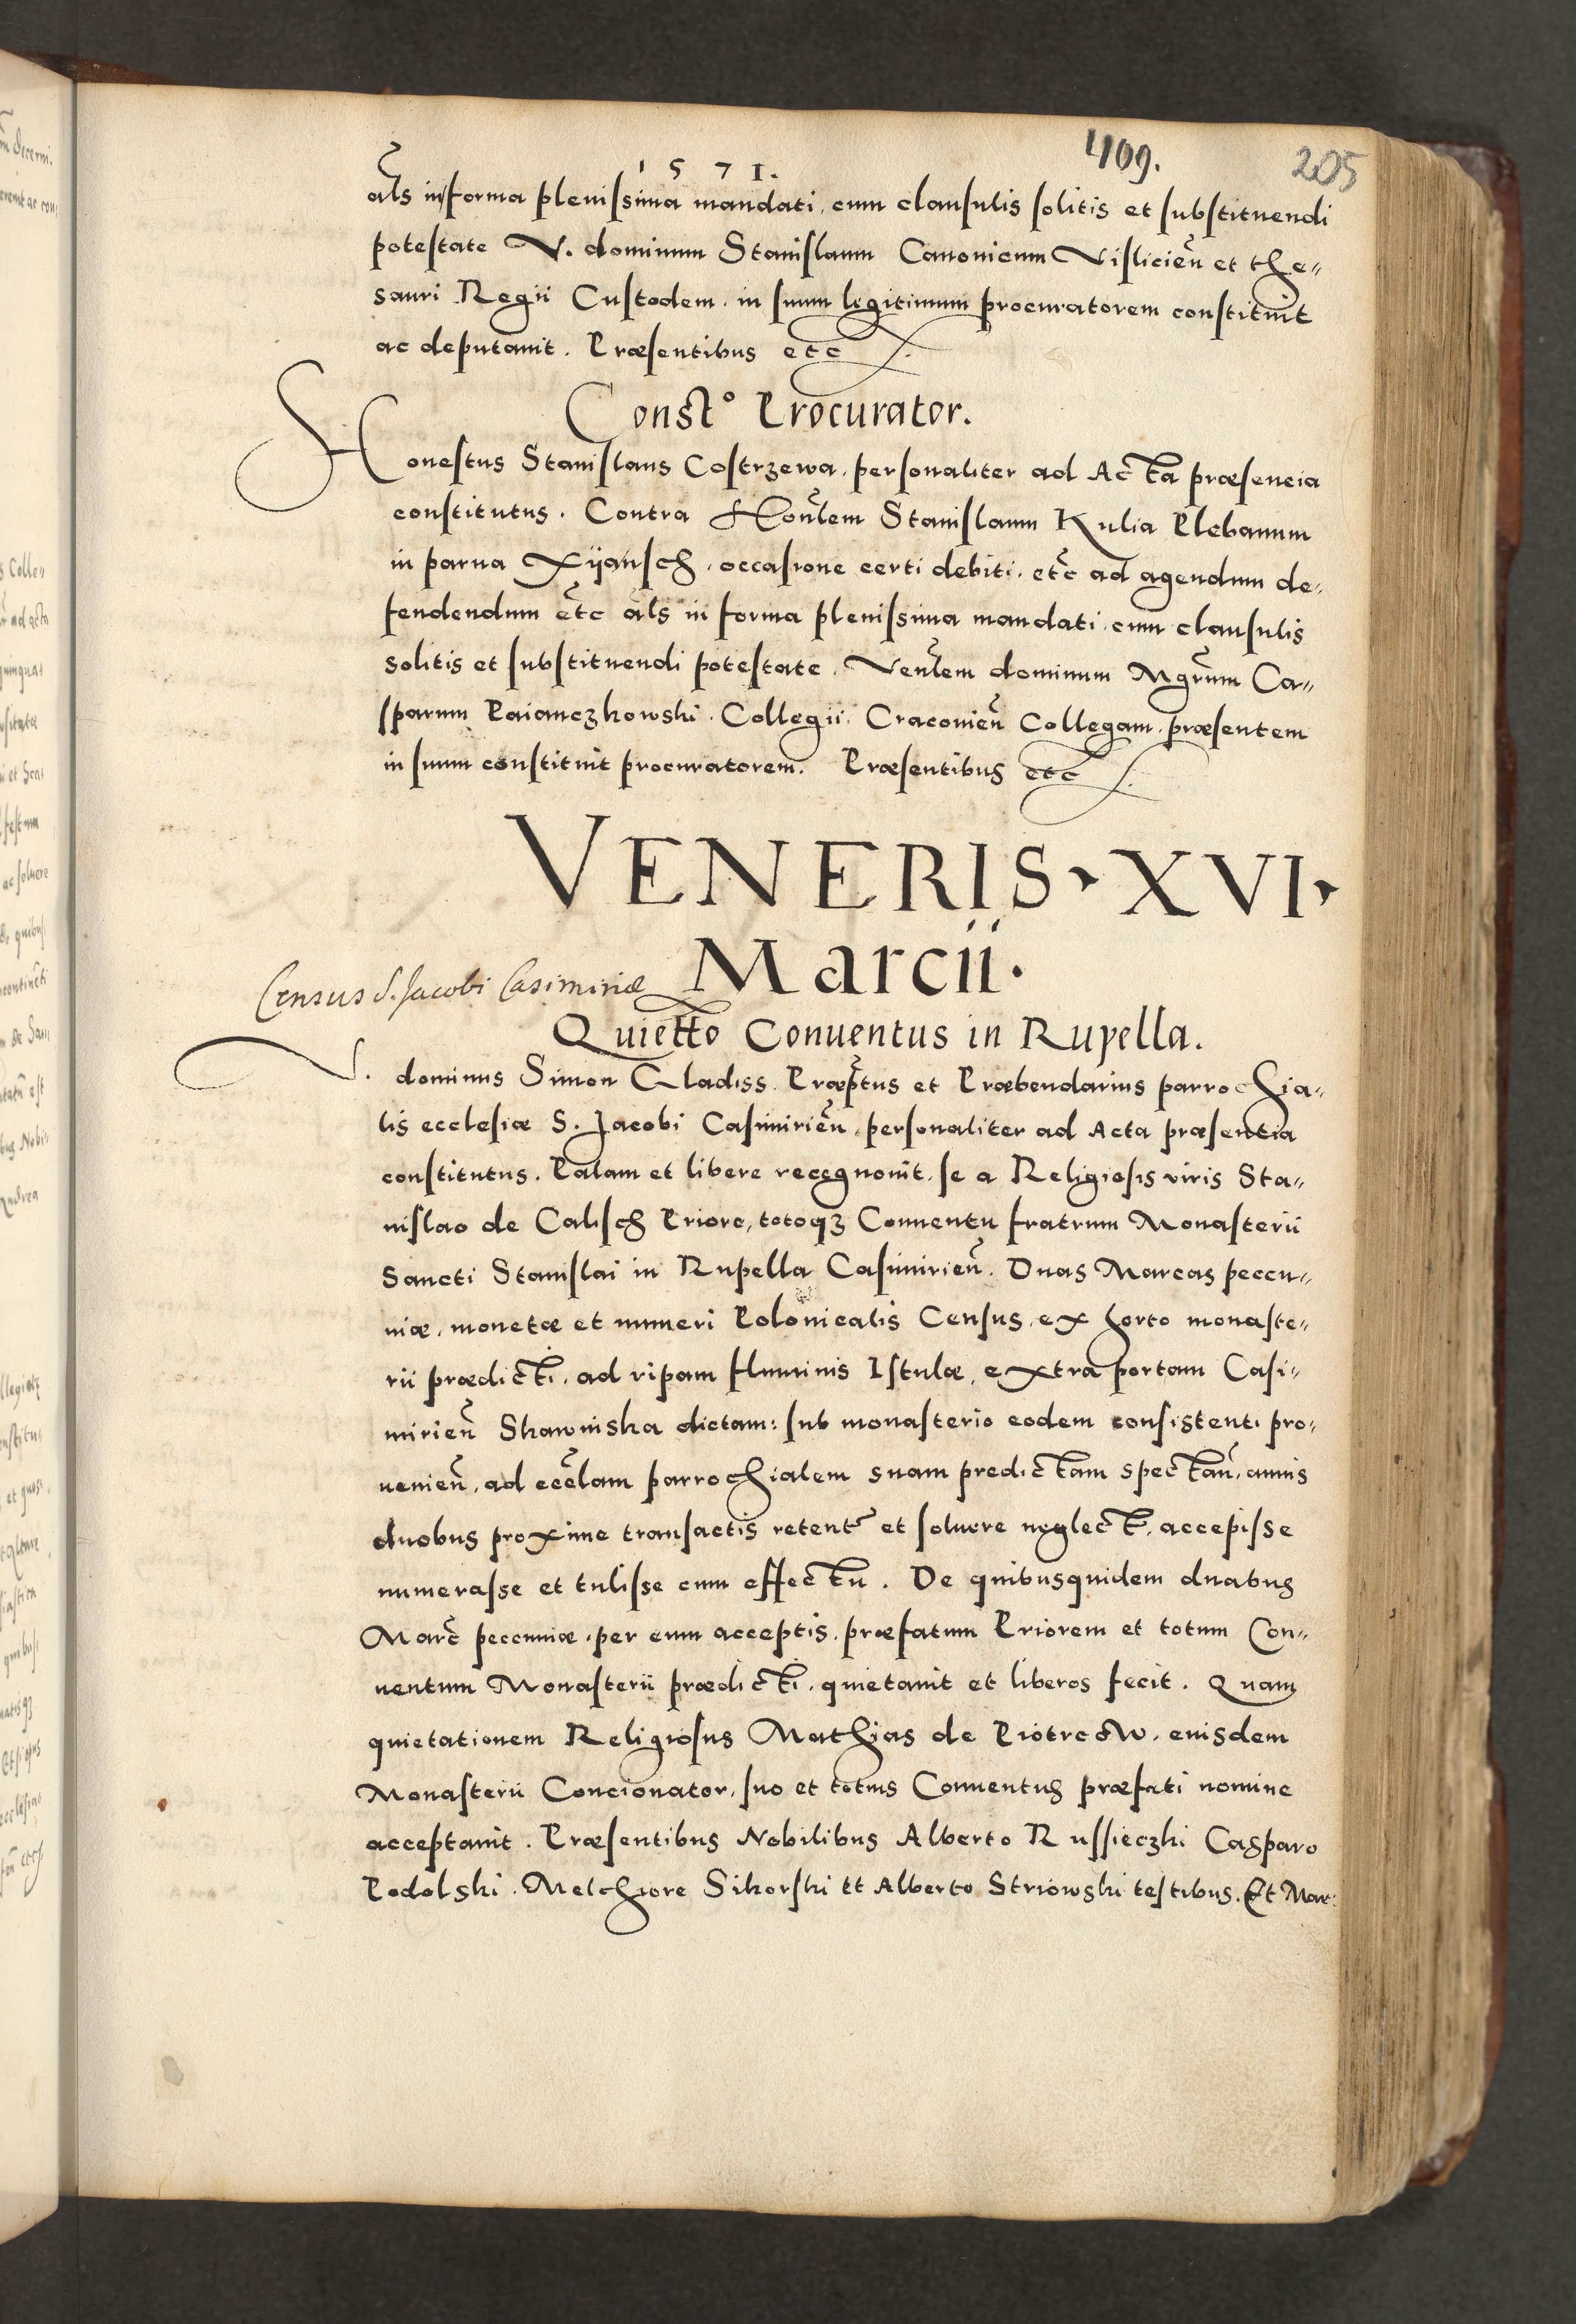 1 5 7 1.
409.
205
als in forma plenissima mandati, cum clausulis solitis et substituendi
potestate V. dominum Stanislaum Canonicum Visliciēn et the„
sauri Regii Custodem, in suum legitimum procuratorem constituit
ac deputauit. Præsentibus etc
Const° Procurator.
Honestus Stanislaus Costrzewa, personaliter ad Acta præsencia
constitutus. Contra Honlem Stanislaum Kulia Plebanum
in parua Xijansch, occasione certi debiti, etc ad agendum de„
fendendum etc als in forma plenissima mandati, cum clausulis
solitis et substituendi potestate. Venlem dominum Mgrum Ca„
sparum Paianczkowski. Collegii Cracouieñ Collegam, præsentem
in suum constituit procuratorem. Præsentibus etc
VENERIS, XVI,
Marcii.
Census S. Jacobi Casimiriæ
Quietto Conuentus in Rupella.
V. dominus Simon Gladiss. Præptus et Præbendarius parrochia„
lis ecclesiæ S. Jacobi Casimirieñ, personaliter ad Acta præsentia
constitutus. Palam et libere recognouit, se a Religiosis viris Sta„
nislao de Calisch Priore, totoqꝫ Conuentu fratrum Monasterii
Sancti Stanislai in Rupella Casimirieñ. Duas Marcas peccu„
niæ, monetæ et numeri Polonicalis Census, ex horto monaste„
rii prædicti, ad ripam fluminis Istulæ, extra portam Casi„
mirieñ Skawinska dictam: sub monasterio eodem consistenti pro„
uenieñ, ad eccelam parrochialem suam predictam spectañ, annis
duobus proxime transactis retent et soluere neglect, accepisse
numerasse et tulisse cum effectu. De quibusquidem duabus
Marc peccuniæ, per eum acceptis, præfatum Priorem et totum Con„
uentum Monasterii prædicti, quietauit et liberos fecit. Quam
quietationem Religiosus Mathias de Piotrcow, eiusdem
Monasterii Concionator, suo et totius Conuentus præfati nomine
acceptauit. Præsentibus Nobilibus Alberto Russieczki Casparo
Podolski, Melchiore Sikorski et Alberto Striowski testibus. Et Mar: